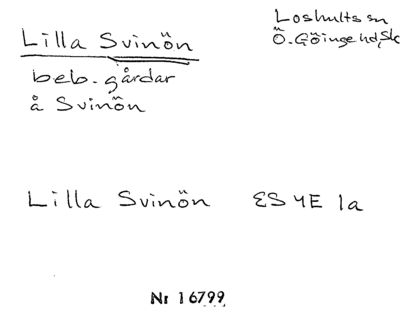 Lilla Svinön
Loshults sn
Ö. Göinge hd, Sk
beb. gårdar
å Svinön
Lilla Svinön ES 4E 1a
Nr 16799